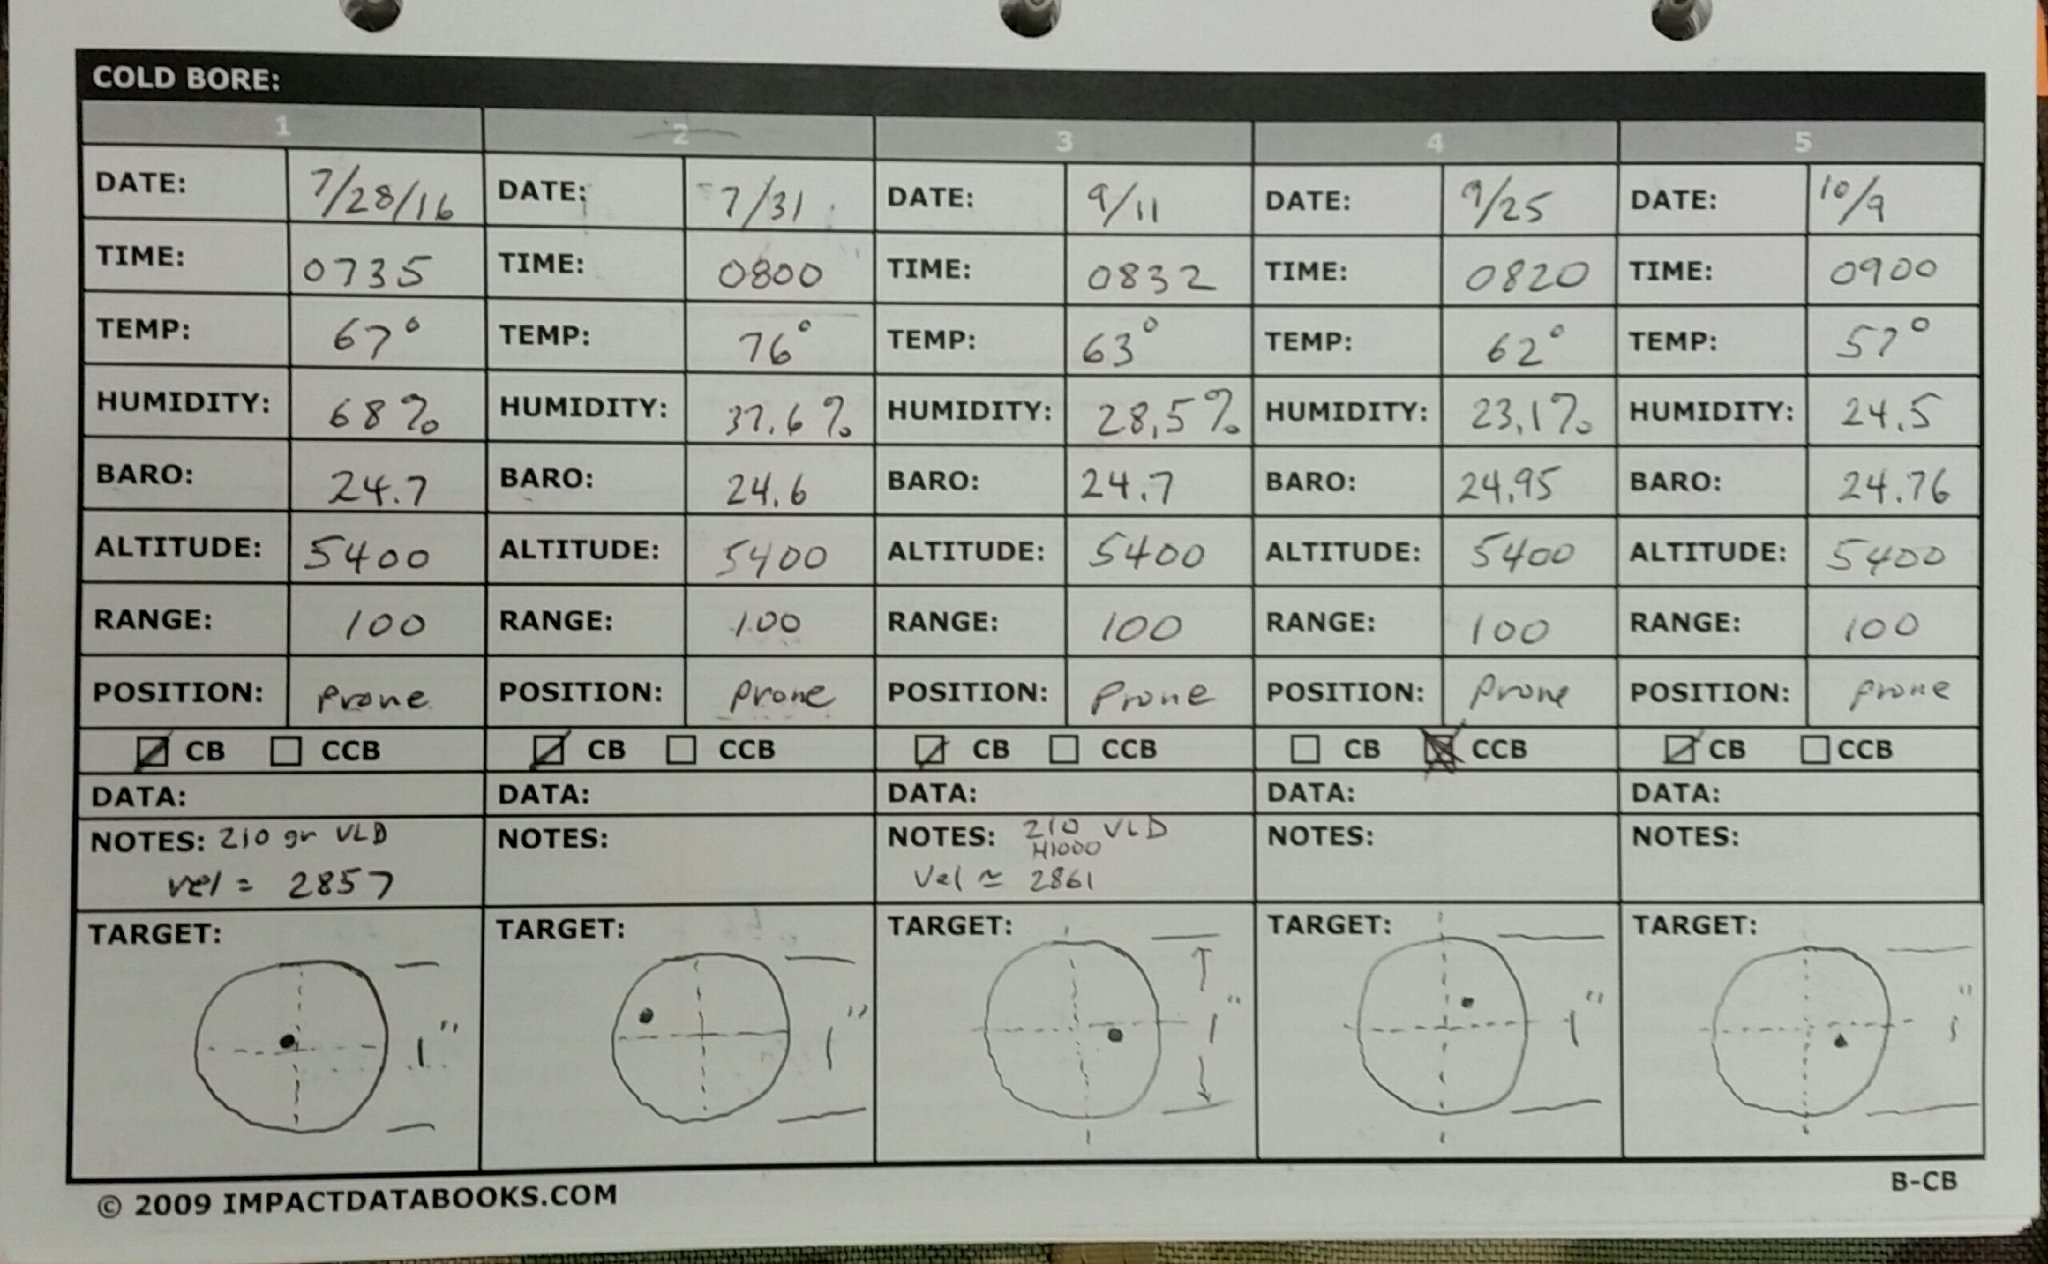 COLD BORE:
1 2 3 4 5
DATE: 7/28/16 DATE: 7/31 DATE: 9/11 DATE: 9/25 DATE: 10/9
TIME: 0735 TIME: 0800 TIME: 0832 TIME: 0820 TIME: 0900
TEMP: 67° TEMP: 76° TEMP: 63° TEMP: 62° TEMP: 57°
HUMIDITY: 68% HUMIDITY: 37.6% HUMIDITY: 28,5% HUMIDITY: 23.1% HUMIDITY: 24.5
BARO: 24.7 BARO: 24.6 BARO: 24.7 BARO: 24.95 BARO: 24.76
ALTITUDE: 5400 ALTITUDE: 5400 ALTITUDE: 5400 ALTITUDE: 5400 ALTITUDE: 5400
RANGE: 100 RANGE: 100 RANGE: 100 RANGE: 100 RANGE: 100
POSITION: Prone POSITION: Prone POSITION: Prone POSITION: Prone POSITION: Prone
CB CCB CB CCB CB CCB CB CCB CB CCB
DATA: DATA: DATA: DATA: DATA:
NOTES: 210 gr VLD NOTES: NOTES: 210 VLD NOTES: NOTES:
H1000
vel = 2857 Vel ≈ 2861
TARGET: TARGET: TARGET: TARGET: TARGET:
1" 1" 1" 1" 1"
© 2009 IMPACTDATABOOKS.COM B-CB